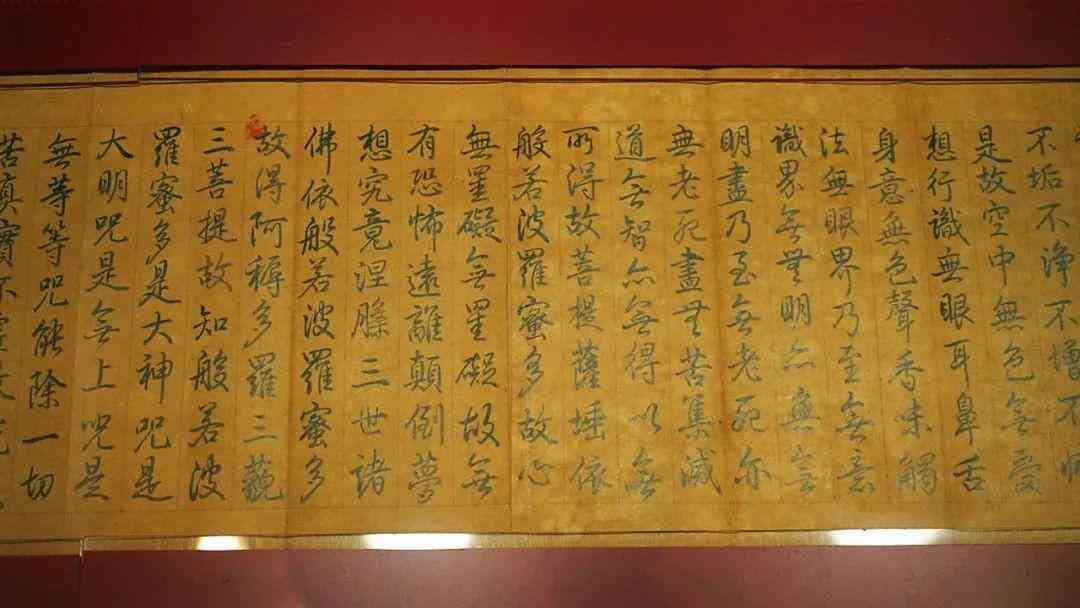 不垢不淨不增不
是故空中無色無受
想行識無眼耳鼻舌
身意無色聲香味觸
法無眼界乃至無意
識界無無明亦無無
明盡乃至無老死亦
無老死盡無苦集滅
道無智亦無得以無
所得故菩提薩埵依
般若波羅蜜多故心
無罣礙無罣礙故無
有恐怖遠離顛倒夢
想究竟涅槃三世諸
佛依般若波羅蜜多
故得阿耨多羅三藐
三菩提故知般若波
羅蜜多是大神咒是
大明咒是無上咒是
無等等咒能除一切
苦真實不虛故